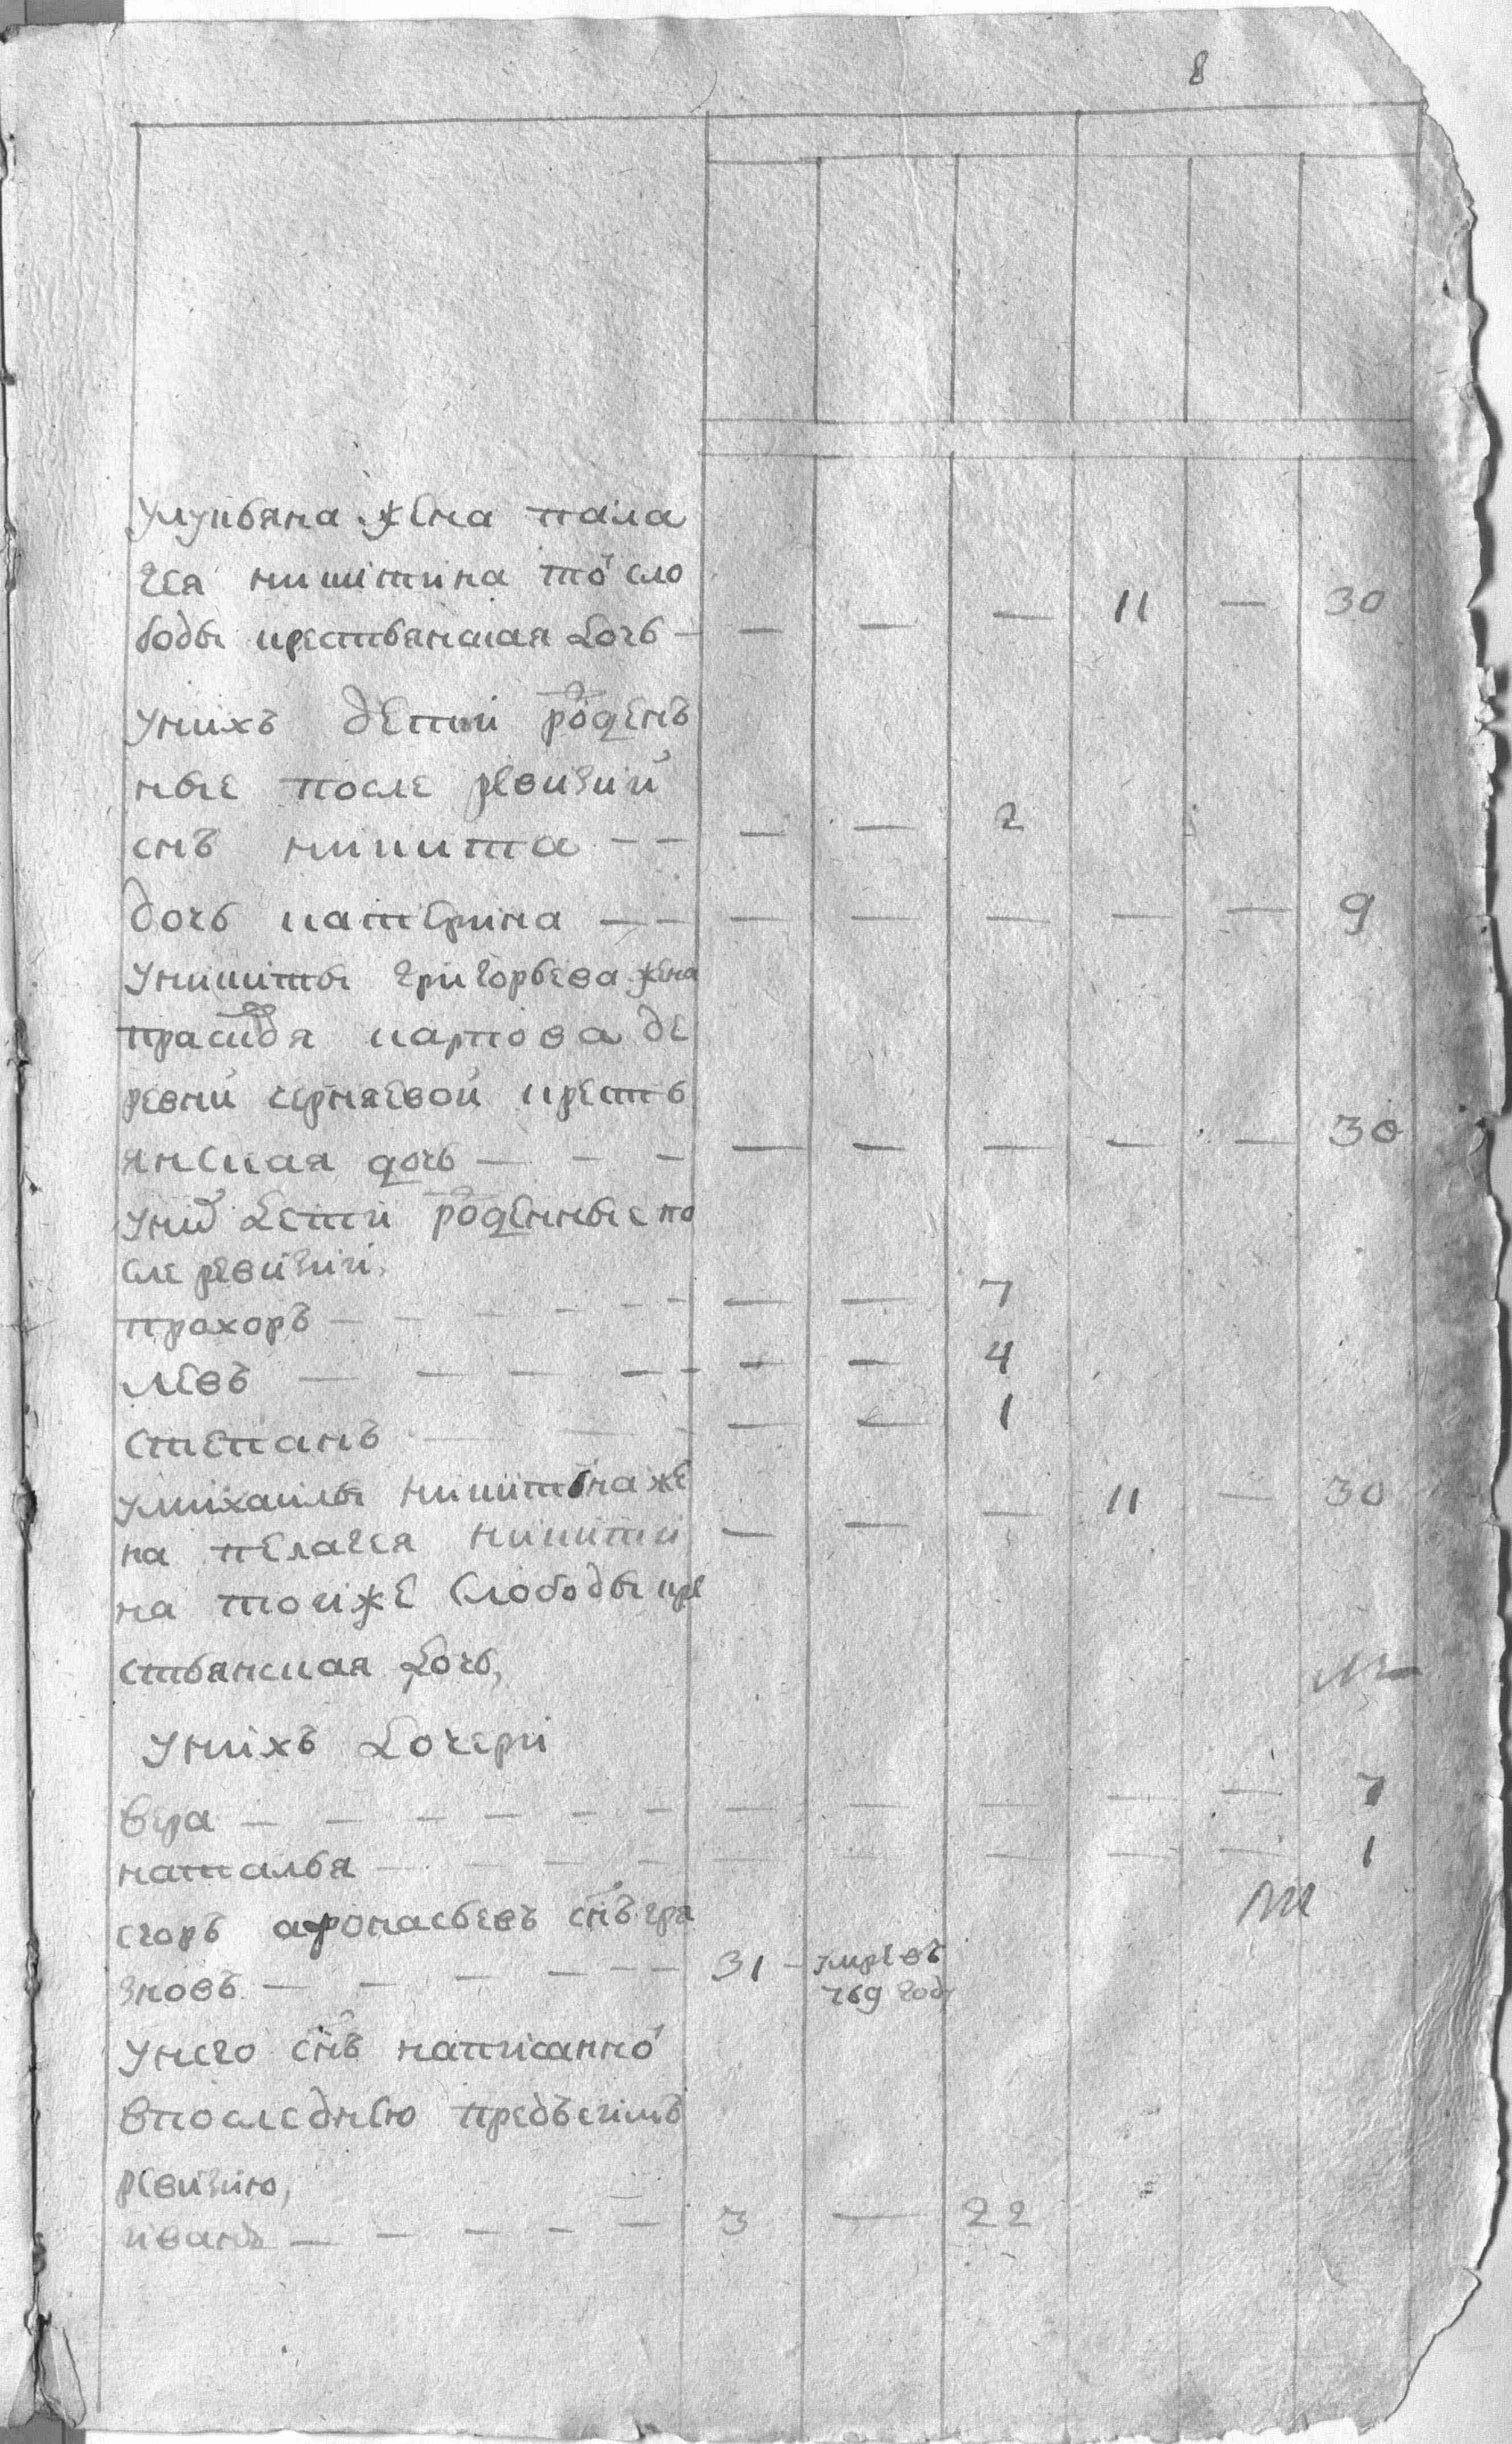 8
Улукьяна жена пала
гея никитина то̇ сло
боды крестьянская дочь — — — — 11 — 30
Уникъ детей роденъ
ные после ревизии
снъ никита — — — — 2
дочь катерина — — — — — — — 9
Уникиты григорьева жена
прасковья карпова де
ревни черняевой кресть
янская дочь — — — — — — — — 30
Уних детей роденные по
сле ревизии,
прохоръ — — — — — — — 7
левъ — — — — — — 4
степанъ — — — — — 1
Умихаилы никитина же
на пелагея никити — — — 11 — 30
на тойже слободы кре
стьянская дочь,
Унихъ дочери
вера — — — — — — — — — — — 7
наталья — — — — — — — — — 1
егоръ афонасьевъ снъ гра
зновъ — — — — — — 31 — умре въ
769 году
Унего снъ написанно
впоследнею предъегимъ
ревизию,
иванъ — — — — — 3 — 22